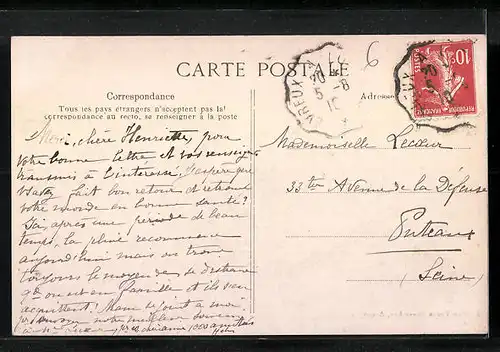 CARTE POSTALE
Correspondance
Tous les pays étrangers n'acceptent pas la
correspondance au recto, se renseigner à la poste
Adresse
6
EVREUX
20
5 -8
10
POSTES
REPUBLIQUE FRANÇAISE
Merci, chère Henriette, pour
votre bonne lettre et vos renseign
transmis à l'intéressé. J'espère que
vous fait bon retour et retrouvé
votre monde en bonne santé?
Ici, après une période de beau
temps, la pluie recommence
aujourd'hui mais on trouve
toujours le moyen de se distraire
qd on est en famille et ils s'en
acquittent! Maman se joint à moi
pr envoyer notre meilleur souvenir
Mademoiselle Lecœur
33 ter Avenue de la Défense
Puteaux
(Seine)